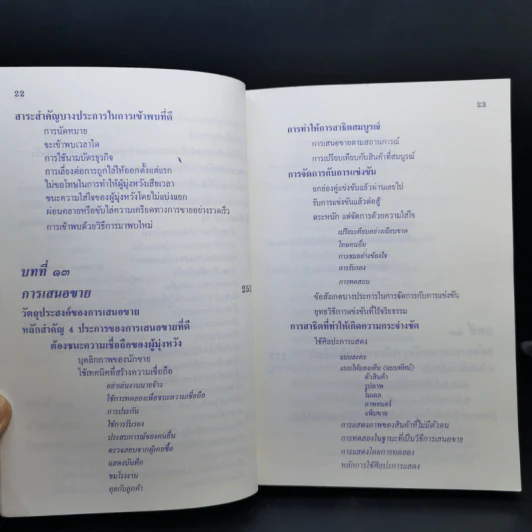 22
สาระสำคัญบางประการในการเข้าพบที่ดี
การนัดหมาย
จะเข้าพบเวลาใด
การใช้นามบัตรธุรกิจ
การเลี่ยงต่อการถูกไล่ให้ออกตั้งแต่แรก
ไม่ขอโทษในการทำให้ผู้มุ่งหวังเสียเวลา
ชนะความใส่ใจของผู้มุ่งหวังโดยไม่แบ่งแยก
ผ่อนคลายหรือขับไล่ความเครียดทางการขายอย่างรวดเร็ว
การเข้าพบด้วยวิธีการมาพบใหม่
บทที่ ๑๓
การเสนอขาย 251
วัตถุประสงค์ของการเสนอขาย
หลักสำคัญ 4 ประการของการเสนอขายที่ดี
ต้องชนะความเชื่อถือของผู้มุ่งหวัง
บุคลิกภาพของนักขาย
ใช้เทคนิคที่สร้างความเชื่อถือ
อย่าเล่นงานนายจ้าง
ใช้การทดลองเพื่อชนะความเชื่อถือ
การประกัน
ใช้การรับรอง
ประสบการณ์ของคนอื่น
ตรวจสอบจากผู้เคยซื้อ
แสดงบันทึก
ชมโรงงาน
คุยกับลูกค้า
23
การทำให้การสาธิตสมบูรณ์
การเสนอขายตามสถานการณ์
การเปรียบเทียบกับสินค้าที่สมบูรณ์
การจัดการกับการแข่งขัน
ยกย่องคู่แข่งขันแล้วผ่านเลยไป
รับการแข่งขันแล้วต่อสู้
ตระหนัก แต่จัดการด้วยความใส่ใจ
เปรียบเทียบอย่างเฉียบขาด
โทษคนอื่น
การชมอย่างข้องใจ
การรับรอง
การทดสอบ
ข้อสังเกตบางประการในการจัดการกับการแข่งขัน
ยุทธวิธีการแข่งขันที่ไร้จริยธรรม
การสาธิตที่ทำให้เกิดความกระจ่างชัด
ใช้ศิลปะการแสดง
แบบแสดง
ตัวสินค้า
รูปภาพ
โมเดล
ภาพยนตร์
แฟ้มขาย
การแสดงภาพของสินค้าที่ไม่มีตัวตน
การทดลองในฐานะที่เป็นวิธีการเสนอขาย
การแสดงโดยการทดลอง
หลักการใช้ศิลปะการแสดง